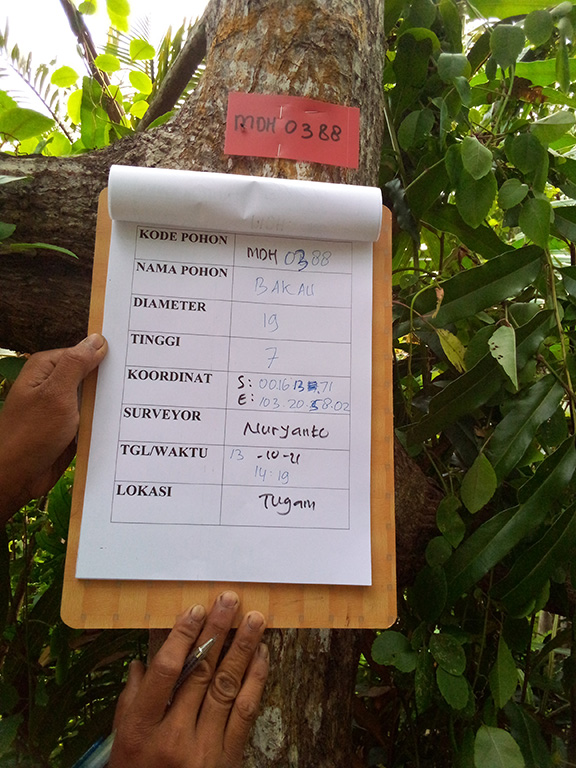 MDH 0388
KODE POHON MDH 0388
NAMA POHON BAKAU
DIAMETER 19
TINGGI 7
KOORDINAT S: 00.16.13.71
E: 103.20.58.02
SURVEYOR Nuryanto
TGL/WAKTU 13-10-21
14:19
LOKASI Tugam